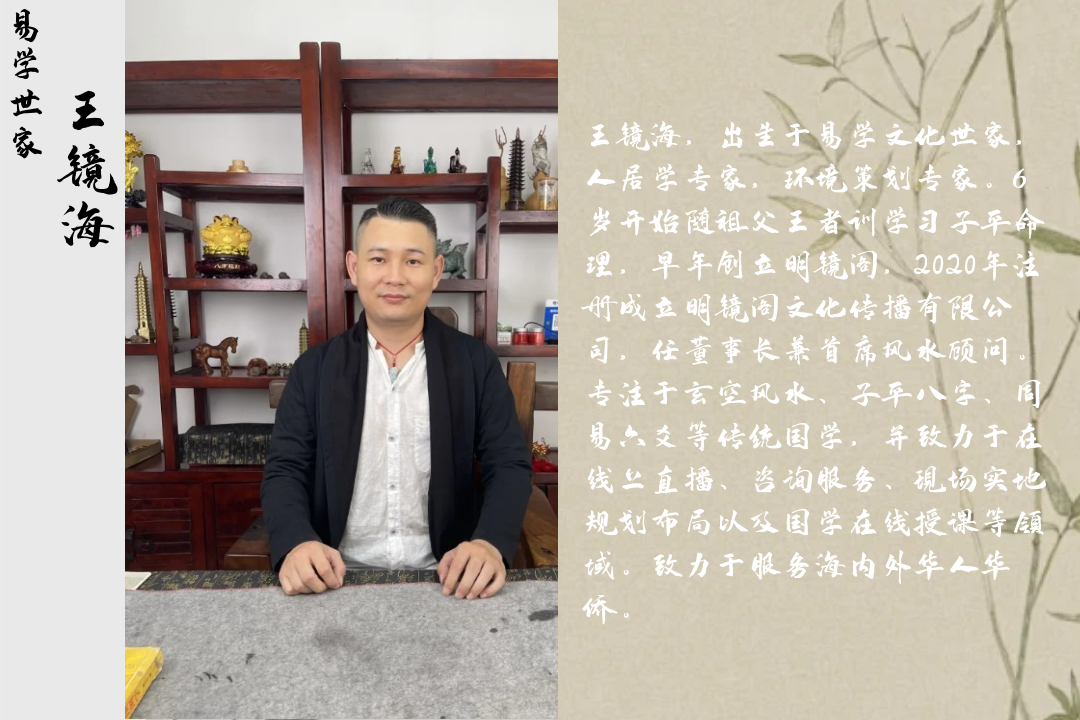 易学世家
王镜海
王镜海，出生于易学文化世家，
人居学专家，环境策划专家。6
岁开始随祖父王者训学习子平命
理，早年创立明镜阁，2020年注
册成立明镜阁文化传播有限公
司，任董事长兼首席风水顾问。
专注于玄空风水、子平八字、同
易六爻等传统国学，并致力于在
线上直播、咨询服务、现场实地
规划布局以及国学在线授课等领
域。致力于服务海内外华人华
侨。